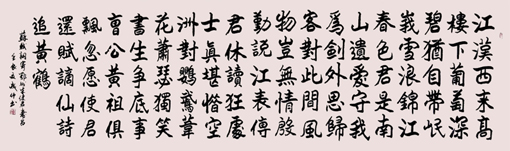 江漢西來高
樓下葡萄深
碧猶自帶岷
峩雪浪錦江
春色君是南
山遺愛守我
爲劍外思歸
客對此間風
物豈無情殷
勤說江表傳
君休讀狂處
士真堪惜空
洲對鸚鵡葦
花蕭瑟獨笑
書生爭底事
曹公黃祖俱
飄忽愿使君
還賦謫仙詩
追黃鶴
蘇軾詞寄鄂州朱使君壽昌